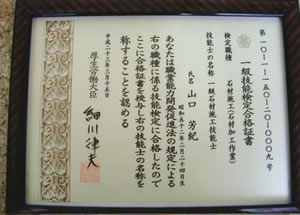 第一〇-一-一五〇-二〇-〇〇〇九号
一級技能検定合格証書
検定職種 石材施工(石材加工作業)
技能士の名称 一級石材施工技能士
氏名 山口 芳紀
昭和五十二年二月二十四日生
あなたは職業能力開発促進法の規定による
右の職種に係る技能検定に合格したので
ここに合格証書を授与し右の技能士の名称を
称することを認める
平成二十三年三月十五日
厚生労働大臣 細川律夫